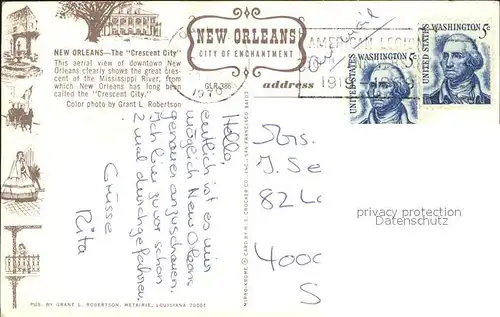 NEW ORLEANS—The "Crescent City"
This aerial view of downtown New
Orleans clearly shows the great cres-
cent of the Mississippi River, from
which New Orleans has long been
called the "Crescent City."
Color photo by Grant L. Robertson
NEW ORLEANS
CITY OF ENCHANTMENT
GLR-386
address
1970
AMERICAN LEGION
1919
Air mail
UNITED STATES
WASHINGTON 5c
UNITED STATES
WASHINGTON 5c
Hello,
endlich ist es mir
möglich New Orleans
genauer anzuschauen.
Ich bin zuvor schon
2 mal durchgefahren.
Grüsse
Rita
MIRRO-KROME ® CARD BY H. S. CROCKER CO., INC., SAN FRANCISCO
J. Se
82
400
S
privacy protection
Datenschutz
PUB. BY GRANT L. ROBERTSON, METAIRIE, LOUISIANA 70001